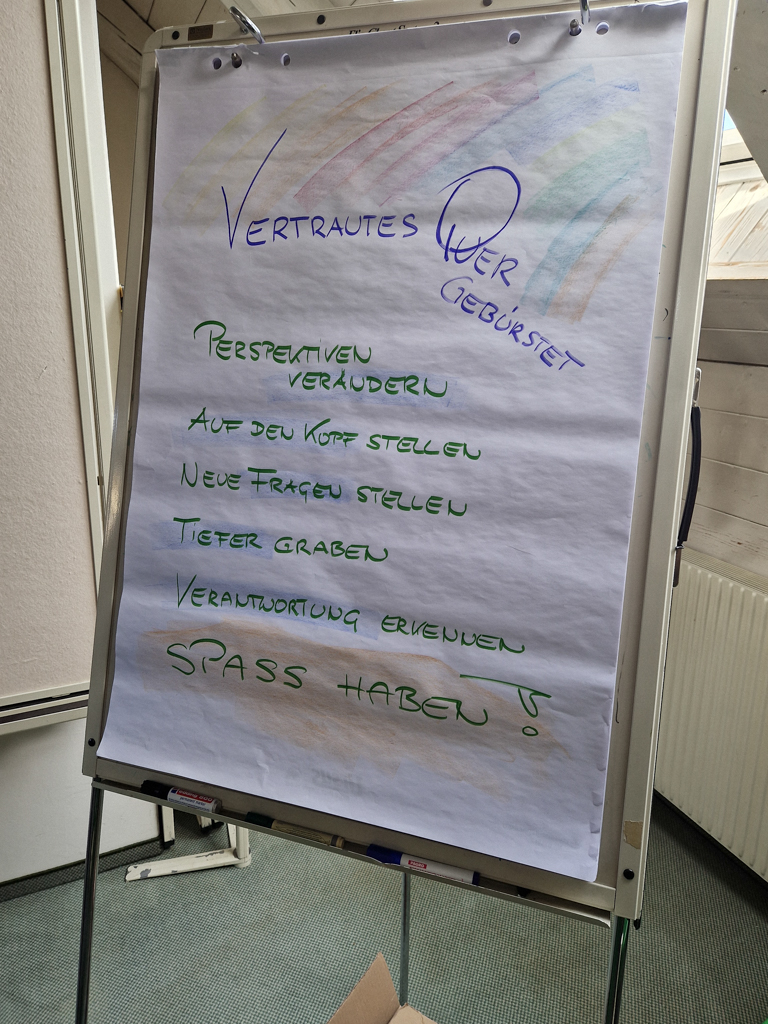 VERTRAUTES QUER
GEBÜRSTET
PERSPEKTIVEN
VERÄNDERN
AUF DEN KOPF STELLEN
NEUE FRAGEN STELLEN
TIEFER GRABEN
VERANTWORTUNG ERKENNEN
SPASS HABEN!